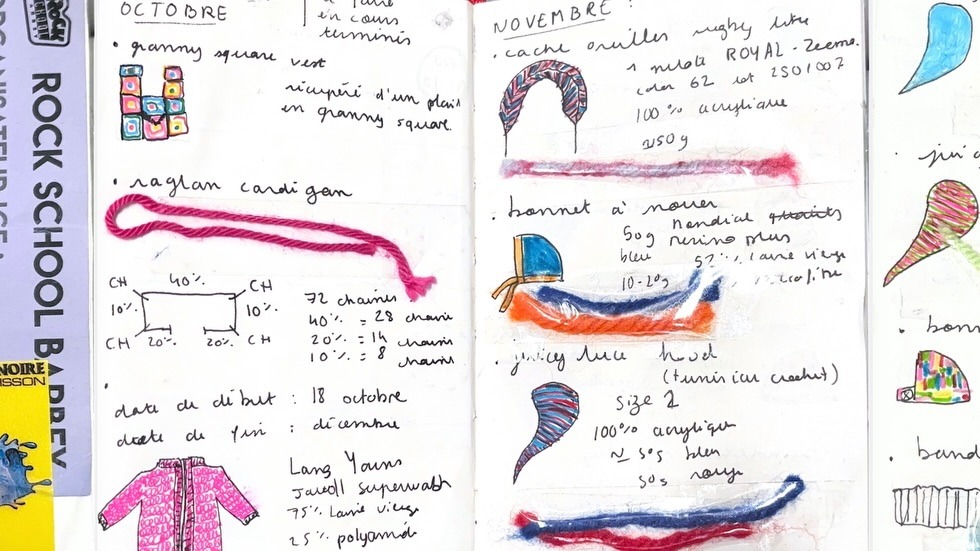 ROCK SCHOOL BARBEY
NOIRE
OCTOBRE
en cours
terminés
• granny square vest
récupéré d'un plaid
en granny square
• raglan cardigan
CH 40% CH
10% 10%
CH 20% 20% CH
72 chaines
40% = 28 chaines
20% = 14 chaines
10% = 8 chaines
date de début : 18 octobre
date de fin : décembre
Lang Yarns
Jawoll superwash
75% laine vierge
25% polyamide
NOVEMBRE :
• cache oreilles rugby
1 pelote ROYAL - Zeeman
color 62 lot 2501007
100% acrylique
~50g
• bonnet à nouer
50g
bleu
10-20g
• juicy luce hood
(tunisian crochet)
size 2
100% acrylique
~ 50g bleu
50g rouge